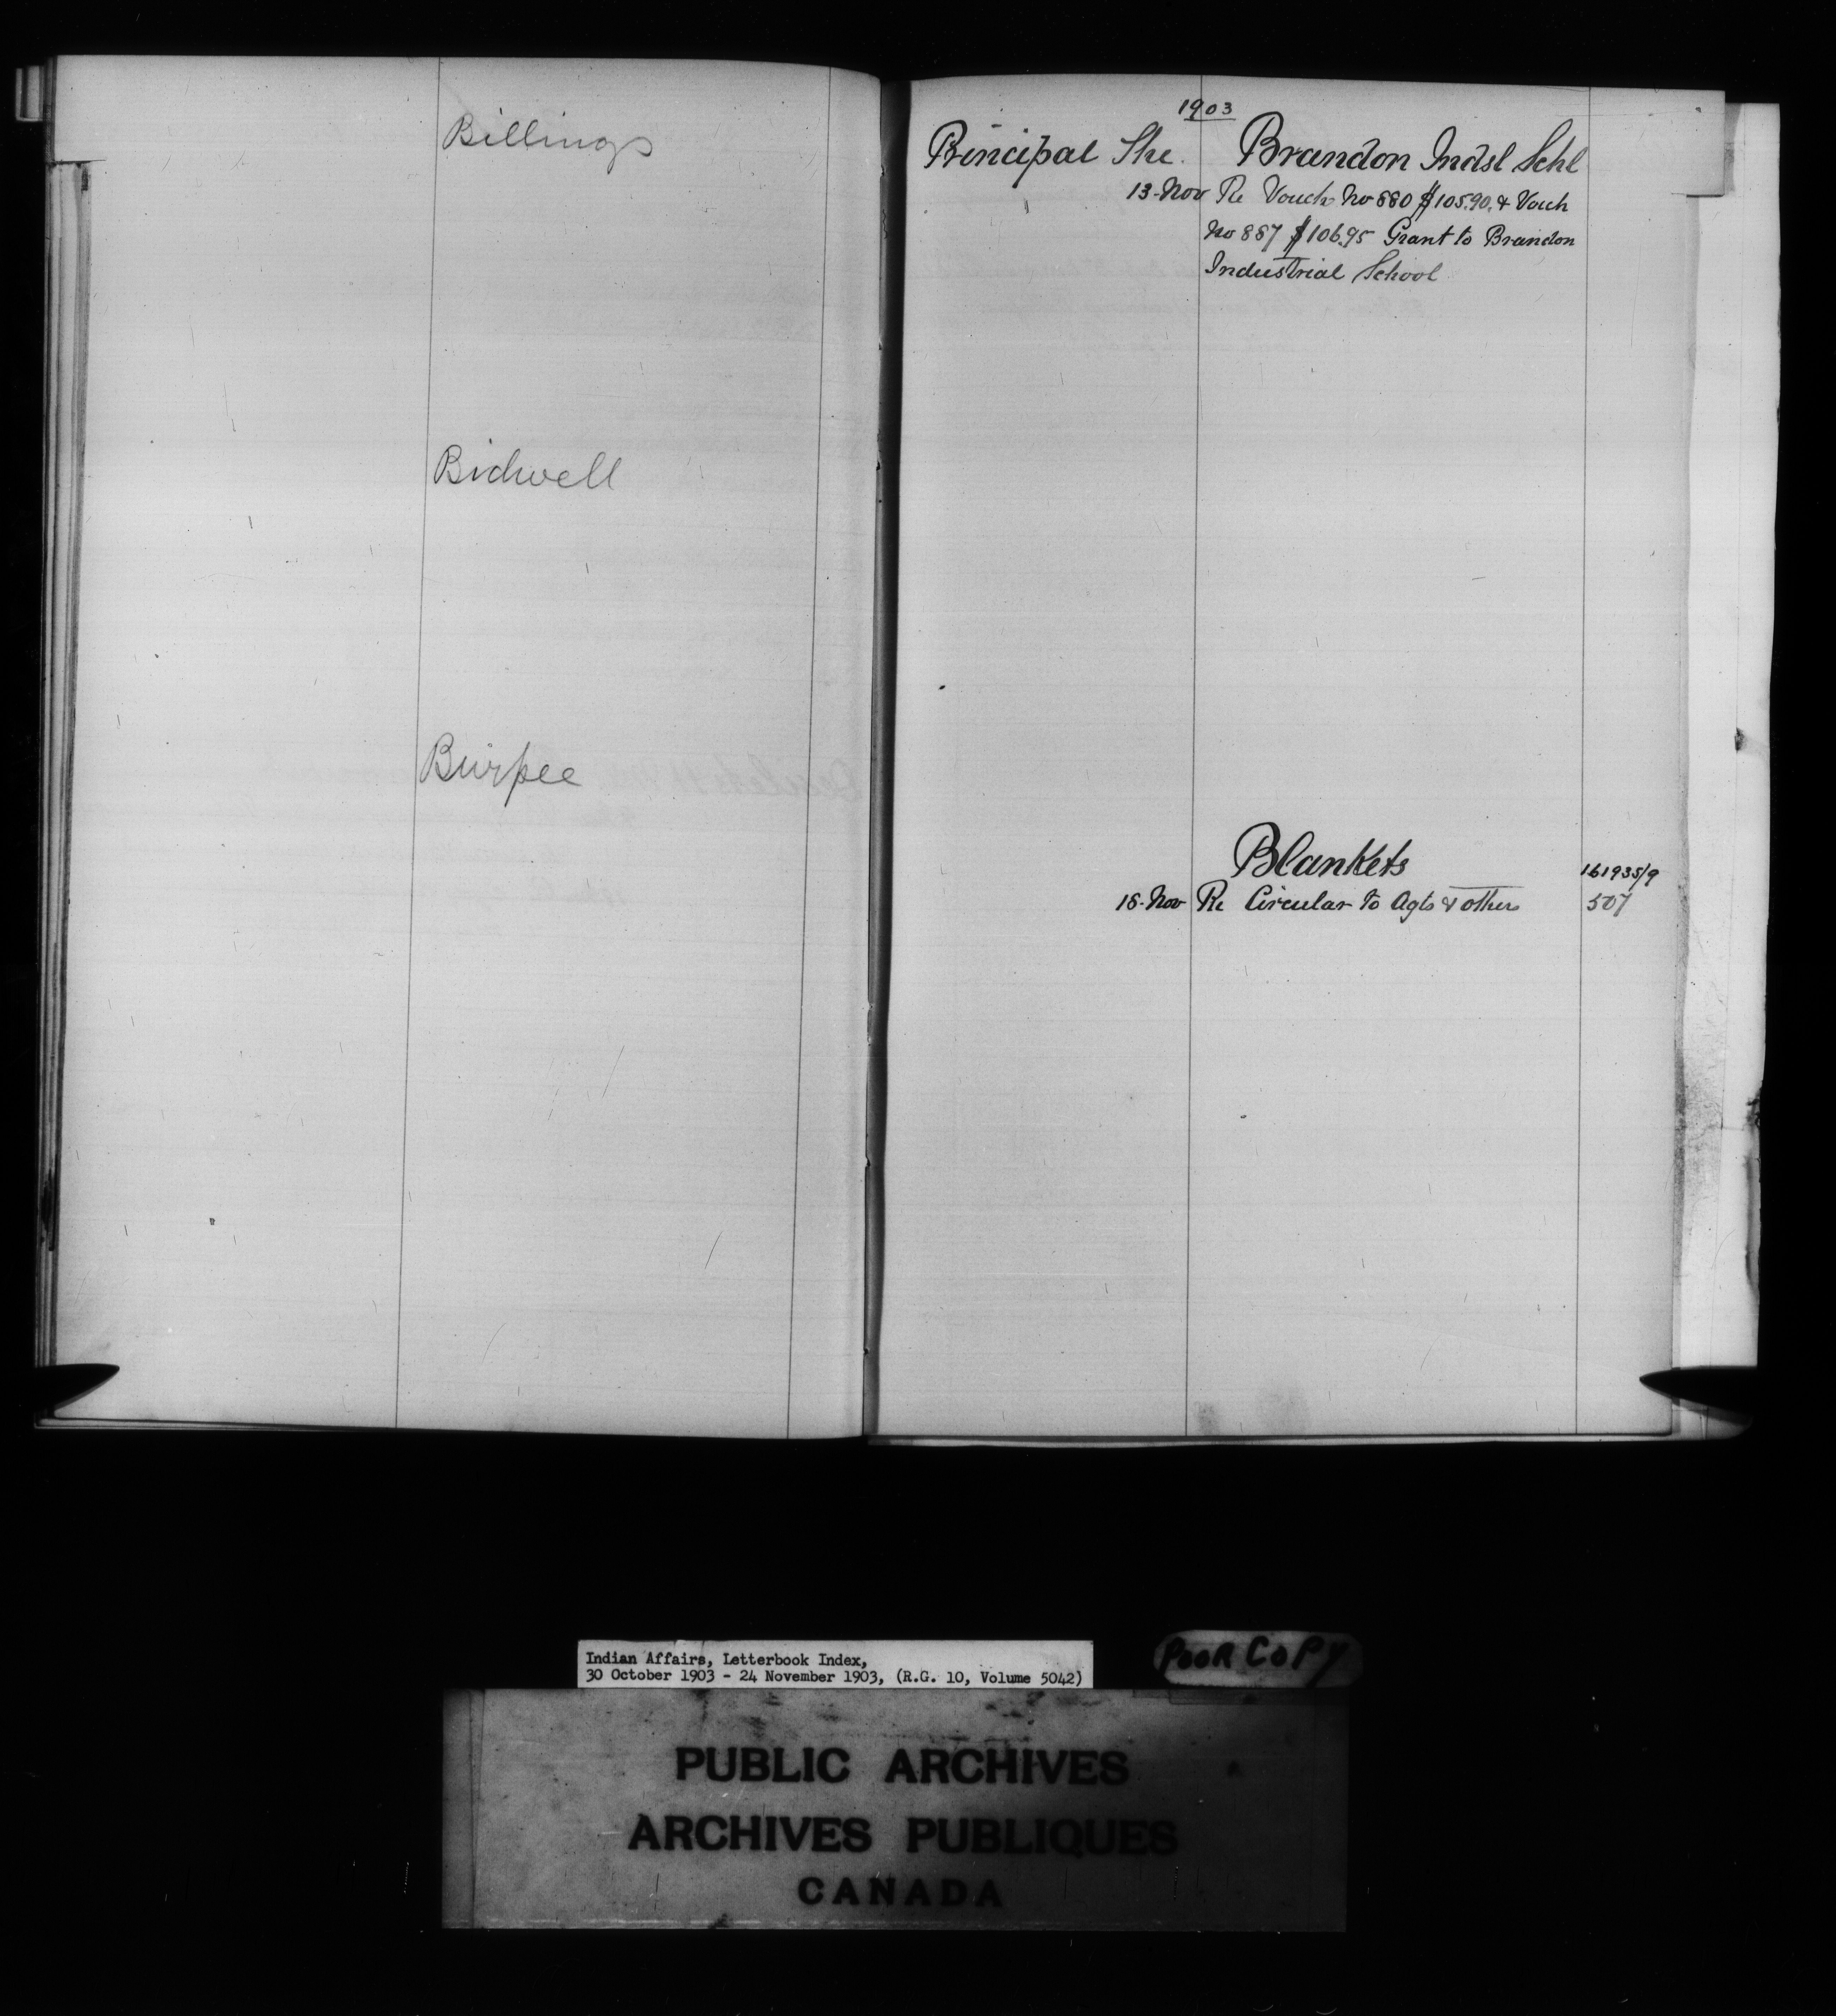 Billings
Bidwell
Burpee
1903
Principal The. Brandon Indsl Schl
13-Nov Re Vouch No 880 $105.90. & Vouch
No 887 $106.95 Grant to Brandon
Industrial School
Blankets 161935/9
18-Nov Re Circular to Agts & others 507
Indian Affairs, Letterbook Index,
30 October 1903 - 24 November 1903, (R.G. 10, Volume 5042)
POOR COPY
PUBLIC ARCHIVES
ARCHIVES PUBLIQUES
CANADA